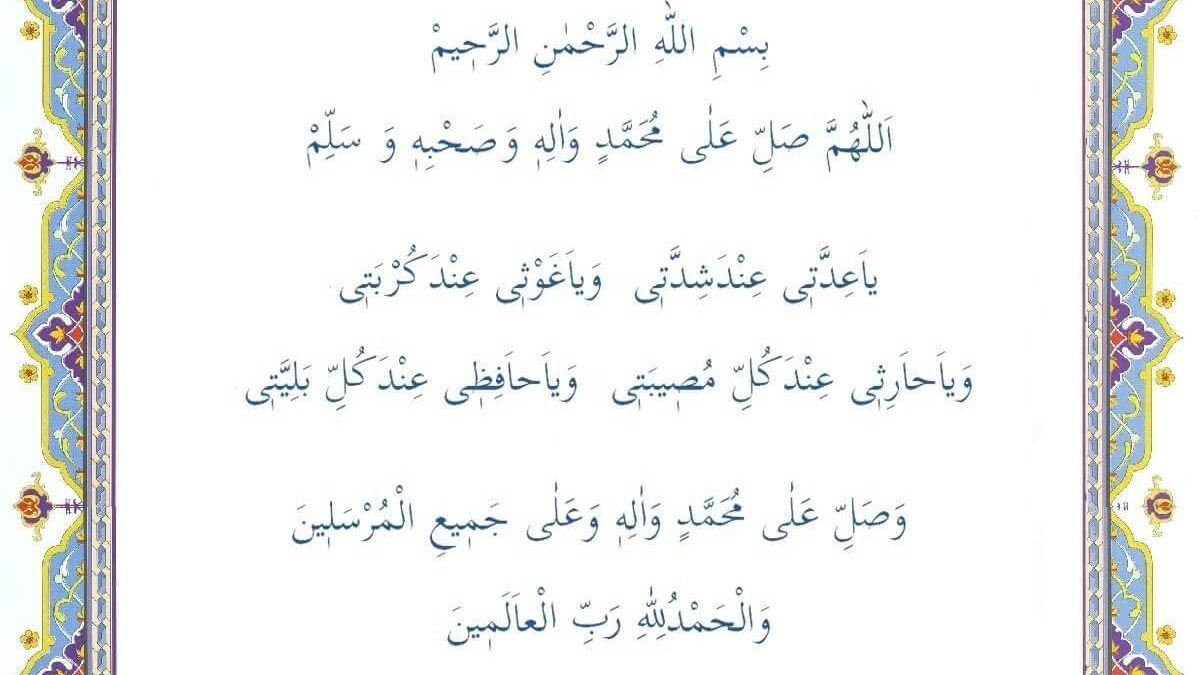 بِسْمِ اللّٰهِ الرَّحْمٰنِ الرَّحٖيمْ
اَللّٰهُمَّ صَلِّ عَلٰى مُحَمَّدٍ وَاٰلِهٖ وَصَحْبِهٖ وَ سَلِّمْ
ياَعِدَّتٖى عِنْدَشِدَّتٖى وَياَغَوْثٖى عِنْدَكُرْبَتٖى
وَياَحاَرِثٖى عِنْدَكُلِّ مُصٖيبَتٖى وَياَحاَفِظٖى عِنْدَكُلِّ بَلِيَّتٖى
وَصَلِّ عَلٰى مُحَمَّدٍ وَاٰلِهٖ وَعَلٰى جَمٖيعِ الْمُرْسَلٖينَ
وَالْحَمْدُلِلّٰهِ رَبِّ الْعاَلَمٖينَ